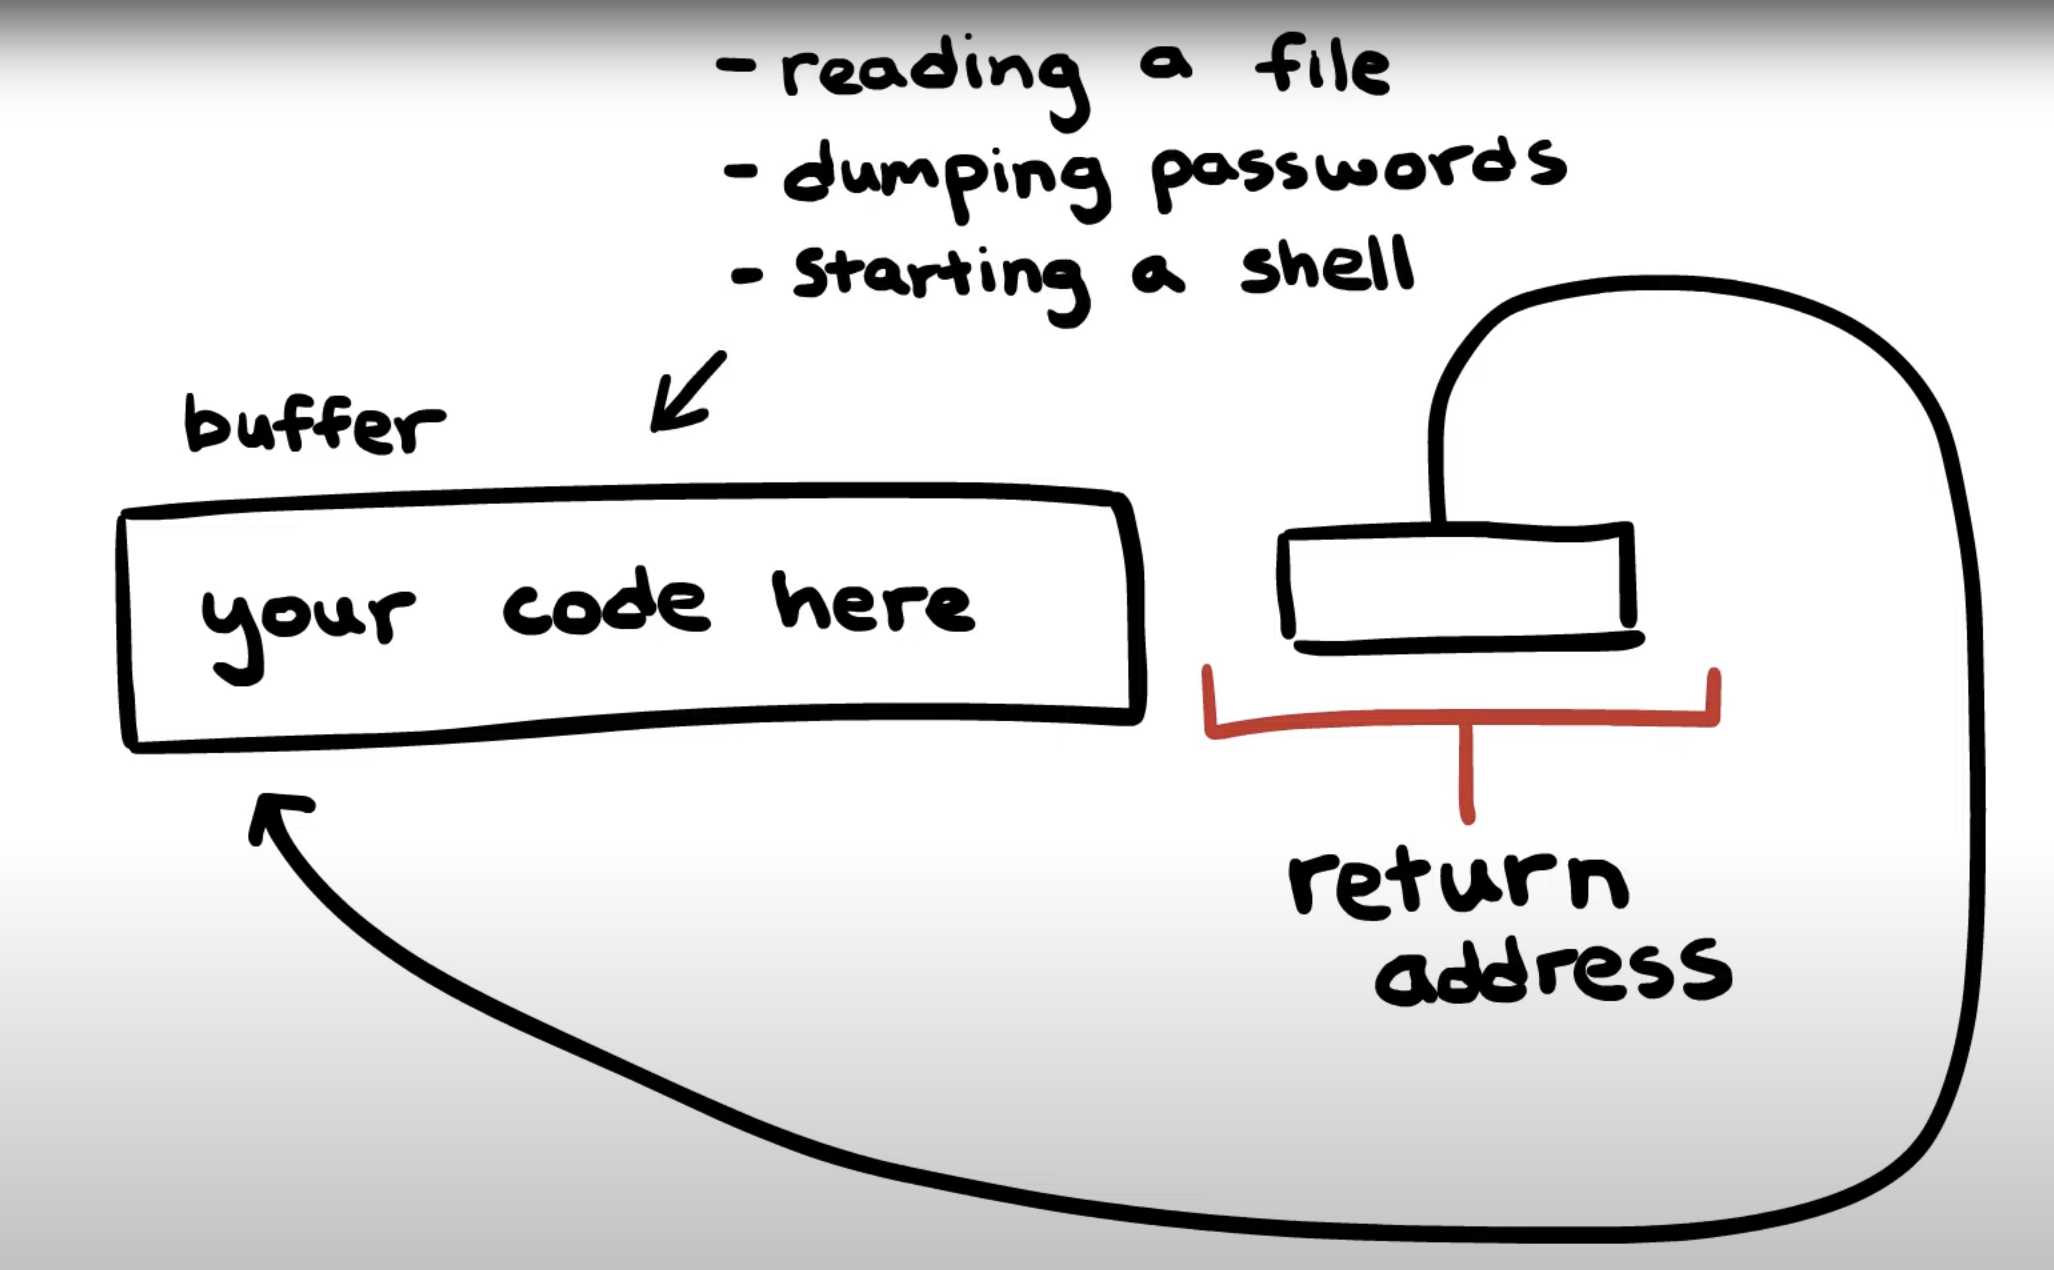 - reading a file
- dumping passwords
- starting a shell
buffer
your code here
return
address